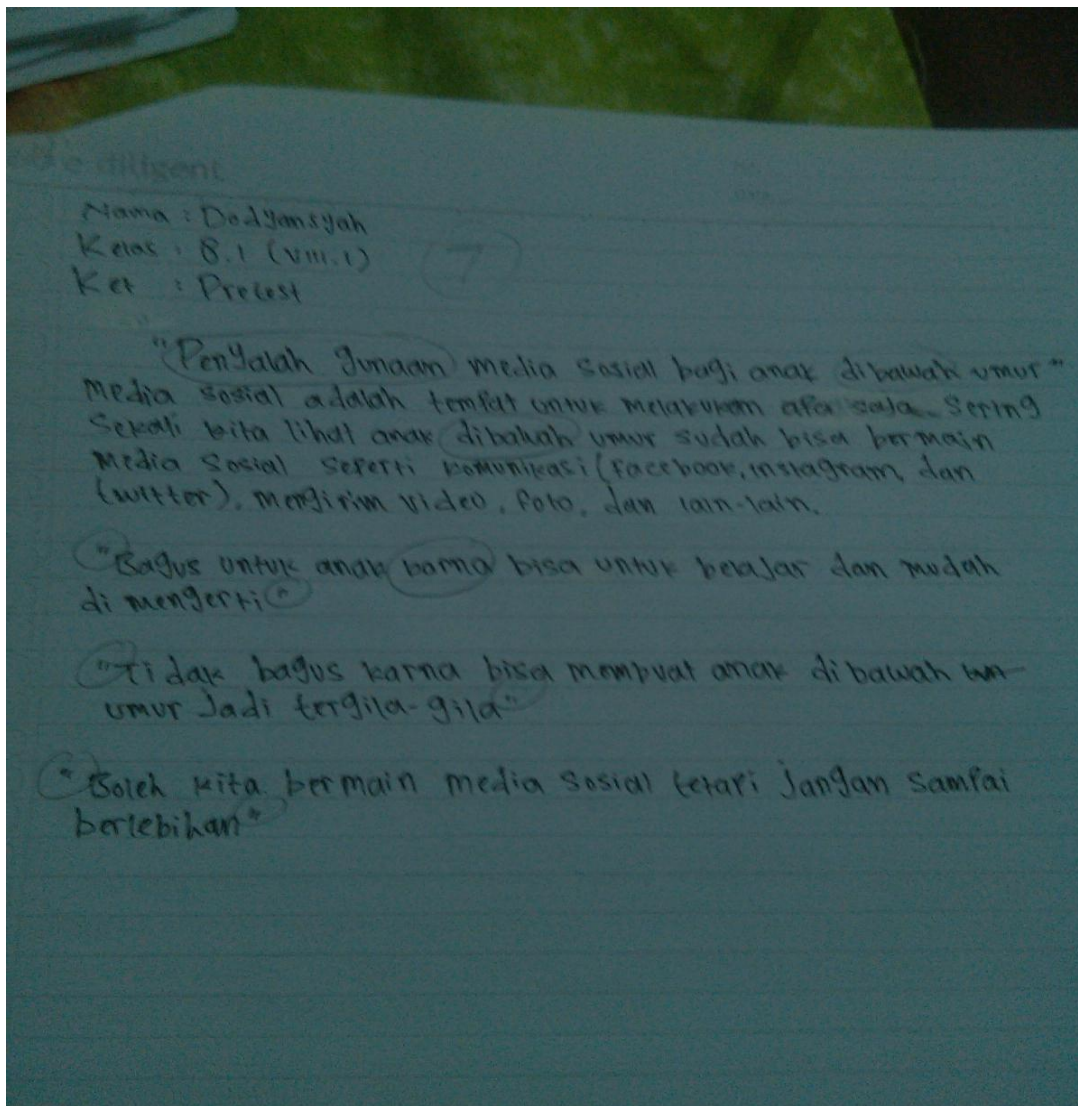 diligent
Nama : Dodyansyah
Kelas : 8.1 (VIII.1)
7
Ket : Pretest
"Penyalah gunaan media sosial bagi anak dibawah umur"
media sosial adalah tempat untuk melakukan apa saja. Sering
Sekali kita lihat anak dibawah umur sudah bisa bermain
media sosial seperti komunikasi (facebook, instagram, dan
twitter), mengirim video, foto, dan lain-lain.
"Bagus untuk anak karna bisa untuk belajar dan mudah
di mengerti"
"Tidak bagus karna bisa membuat anak dibawah
umur Jadi tergila-gila"
"Boleh kita bermain media sosial tetapi jangan sampai
berlebihan"